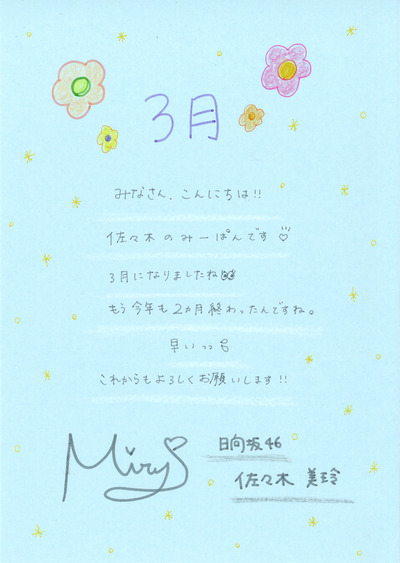 3月
みなさん、こんにちは!!
佐々木のみーぱんです♡
3月になりましたね
もう今年も2カ月終わったんですね。
早いっっ
これからもよろしくお願いします!!
Miry
日向坂46
佐々木 美玲